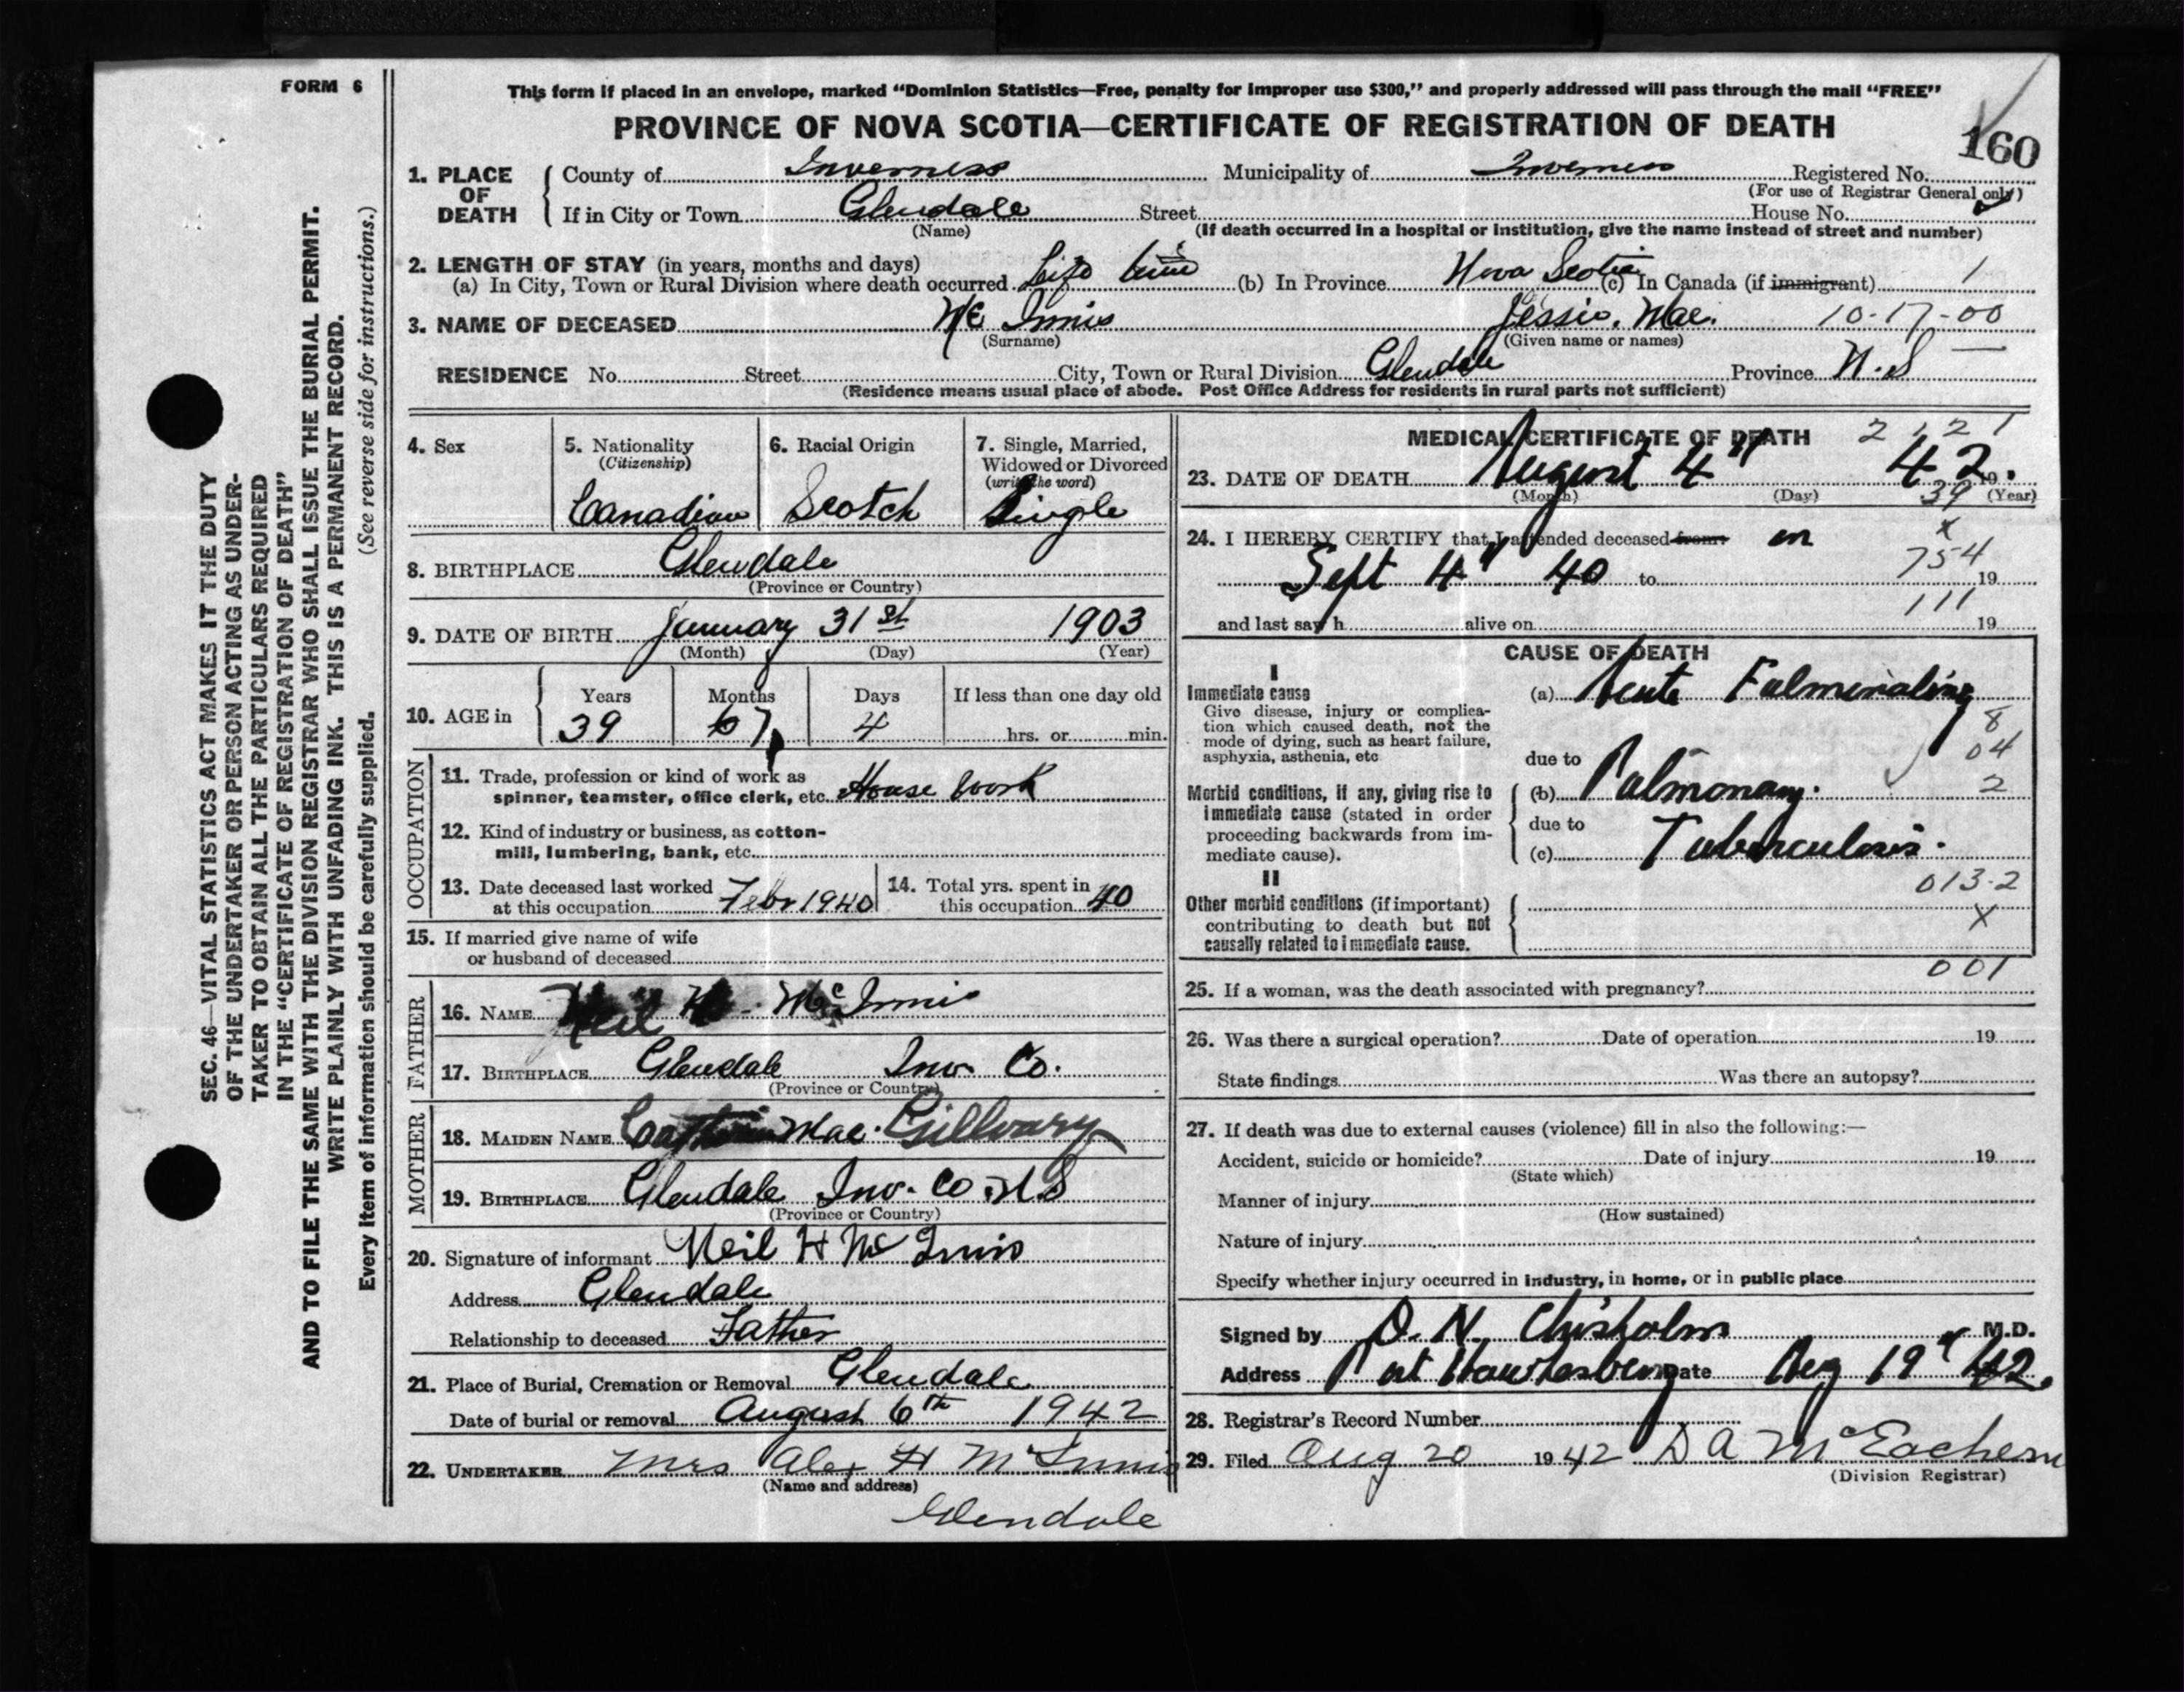 FORM 6
This form if placed in an envelope, marked “Dominion Statistics—Free, penalty for improper use $300,” and properly addressed will pass through the mail “FREE”
PROVINCE OF NOVA SCOTIA—CERTIFICATE OF REGISTRATION OF DEATH
160
1. PLACE OF DEATH County of Inverness Municipality of Inverness Registered No.
(For use of Registrar General only)
If in City or Town Glendale Street House No.
(Name) (If death occurred in a hospital or institution, give the name instead of street and number)
2. LENGTH OF STAY (in years, months and days)
(a) In City, Town or Rural Division where death occurred Life time (b) In Province Nova Scotia (c) In Canada (if immigrant) 1
3. NAME OF DECEASED Mc Innis Jessie. Mae. 10-17-00
(Surname) (Given name or names)
RESIDENCE No. Street City, Town or Rural Division Glendale Province N.S
(Residence means usual place of abode. Post Office Address for residents in rural parts not sufficient)
SEC. 46—VITAL STATISTICS ACT MAKES IT THE DUTY
OF THE UNDERTAKER OR PERSON ACTING AS UNDER-
TAKER TO OBTAIN ALL THE PARTICULARS REQUIRED
IN THE “CERTIFICATE OF REGISTRATION OF DEATH”
AND TO FILE THE SAME WITH THE DIVISION REGISTRAR WHO SHALL ISSUE THE BURIAL PERMIT.
WRITE PLAINLY WITH UNFADING INK. THIS IS A PERMANENT RECORD.
Every item of information should be carefully supplied. (See reverse side for instructions.)
4. Sex
5. Nationality
(Citizenship)
Canadian
6. Racial Origin
Scotch
7. Single, Married,
Widowed or Divorced
(write the word)
Single
8. BIRTHPLACE Glendale
(Province or Country)
9. DATE OF BIRTH January 31st 1903
(Month) (Day) (Year)
10. AGE in Years Months Days If less than one day old
39 67 4 hrs. or min.
OCCUPATION
11. Trade, profession or kind of work as
spinner, teamster, office clerk, etc. House Work
12. Kind of industry or business, as cotton-
mill, lumbering, bank, etc.
13. Date deceased last worked
at this occupation Febr 1940
14. Total yrs. spent in
this occupation 40
15. If married give name of wife
or husband of deceased
FATHER
16. NAME Neil H. McInnis
17. BIRTHPLACE Glendale Inv. Co.
(Province or Country)
MOTHER
18. MAIDEN NAME Mac. Gillvary
19. BIRTHPLACE Glendale Inv. Co. N.S
(Province or Country)
20. Signature of informant Neil H Mc Innis
Address Glendale
Relationship to deceased Father
21. Place of Burial, Cremation or Removal Glendale
Date of burial or removal August 6th 1942
22. UNDERTAKER Mrs Alex H McInnis
(Name and address)
Glendale
MEDICAL CERTIFICATE OF DEATH 2 1 2 1
23. DATE OF DEATH August 4th 42. 19
(Month) (Day) (Year)
39
x
24. I HEREBY CERTIFY that I attended deceased from on
Sept 4" 40 to 19
754
111
and last saw h alive on 19
CAUSE OF DEATH
I
Immediate cause
Give disease, injury or complica-
tion which caused death, not the
mode of dying, such as heart failure,
asphyxia, asthenia, etc
(a) Acute Fulminating
8
04
due to
Morbid conditions, if any, giving rise to
immediate cause (stated in order
proceeding backwards from im-
mediate cause).
(b) Pulmonary. 2
due to
(c) Tuberculosis.
II
Other morbid conditions (if important)
contributing to death but not
causally related to immediate cause.
013-2
X
001
25. If a woman, was the death associated with pregnancy?
26. Was there a surgical operation? Date of operation 19
State findings Was there an autopsy?
27. If death was due to external causes (violence) fill in also the following:—
Accident, suicide or homicide? Date of injury 19
(State which)
Manner of injury
(How sustained)
Nature of injury
Specify whether injury occurred in industry, in home, or in public place
Signed by D. N. Chisholm M.D.
Address Port Hawkesbury Date Aug 19" 42.
28. Registrar's Record Number
29. Filed Aug 20 1942 D A McEachern
(Division Registrar)